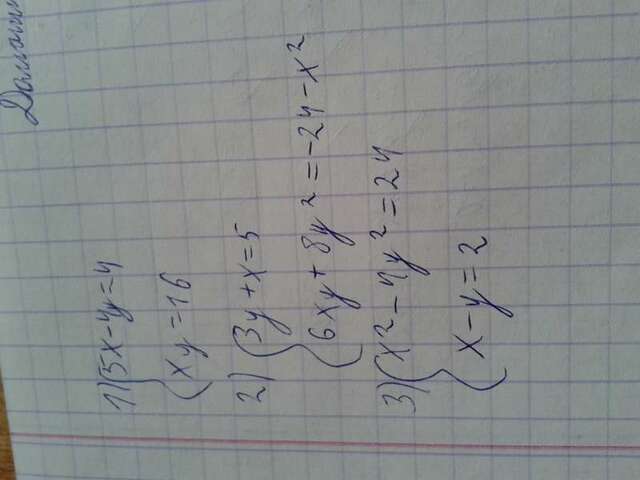 Домашн
1) {5x-4y=4
{xy=16
2) {3y+x=5
{6xy+8y²=-24-x²
3) {x²-4y²=24
{x-y=2